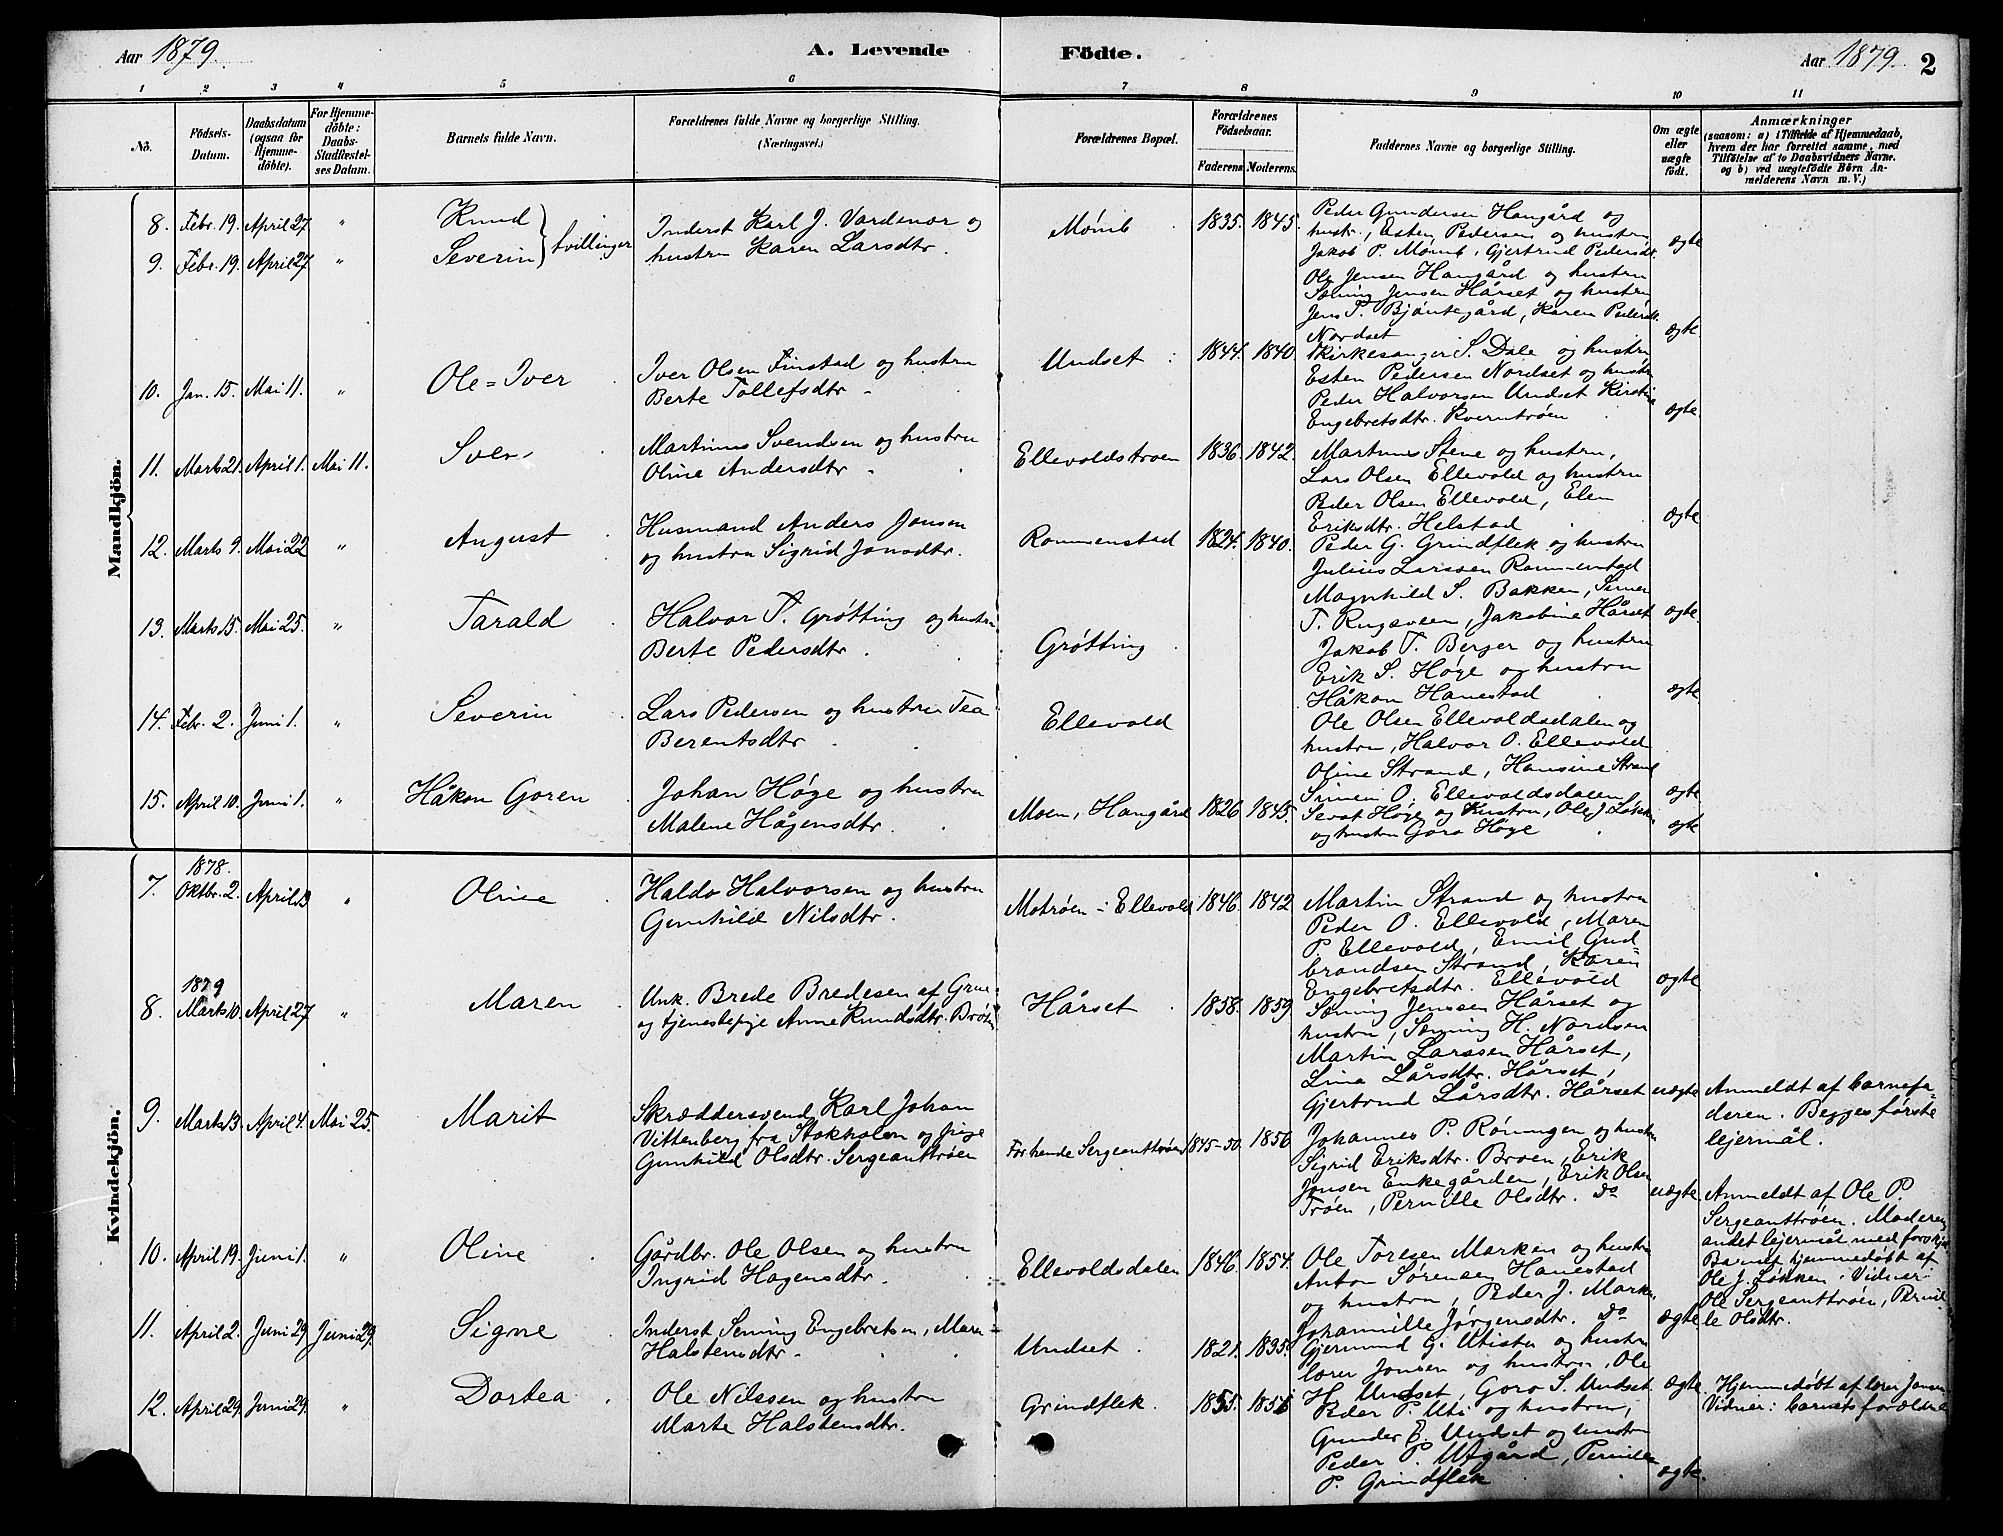 Aar 1879.
A. Levende Födte.
Aar 1879. 2
1 2 3 4 5 6 7 8 9 10 11
No.
Födsels-Datum.
Daabsdatum (ogsaa for Hjemmedöbte).
For Hjemmedöbte: Daabs-Stadfæstelses Datum.
Barnets fulde Navn.
Forældrenes fulde Navne og borgerlige Stilling.
(Næringsvei.)
Forældrenes Bopæl.
Forældrenes Födselsaar.
Faderens Moderens.
Faddernes Navne og borgerlige Stilling.
Om ægte eller uægte födt.
Anmærkninger
(saasom: a) i Tilfælde af Hjemmedaab,
hvem der har forrettet samme, med
Tilföielse af to Daabsvidners Navne.
og b) ved uægtefödte Börn An-
melderens Navn m. V.)
Mandkjön.
8. Febr. 19. April 27 " Knud } tvillinger
Inderst Karl J. Vardenær og
Mømb 1835. 1845.
Peder Gundersen Hangård og
hustr., Esten Pedersen og hustru
ægte
9. Febr. 19. April 27 " Severin
hustru Karen Larsdtr
Jakob P. Mømb, Gjertrud Pedersdt.
Ole Jensen Hangård og hustru
Søning Jensen Hårset og hustru
Jens P. Bjøntegård, Karen Pedersdt.
Nordset
ægte
10. Jan. 15. Mai 11. " Ole=Iver
Iver Olsen Finstad og hustru
Berte Tollefsdtr
Undset 1844. 1840.
Kirkesanger S. Dale og hustru
Esten Pedersen Nordset og hustru
Peder Halvorsen Undset Kirstine
Engebretsdtr. Kverntrøen
ægte
11. Marts 21. April 1. Mai 11. Iver
Martinus Svendsen og hustru
Oline Andersdtr
Ellevoldstroen 1836. 1842.
Martinus Stene og hustru,
Lars Olsen Ellevold og hustru
Peder Olsen Ellevold, Elen
Eriksdtr. Helstad
ægte
12. Marts 9. Mai 22 " August
Husmand Anders Jonsen
og hustru Sigrid Jonsdtr.
Rommenstad 1824. 1840.
Peder G. Grindflek og hustru
Julius Larssen Rommenstad
Magnhild S. Bakken, Simen
T. Rugsveen, Jakobine Hårset
ægte
13. Marts 15. Mai 25. " Tarald
Halvor T. Grøtting og hustru
Berte Pedersdtr
Grøtting
Jakob T. Berger og hustru
Erik S. Høge og hustru
Håkon Hanestad
ægte
14. Febr. 2. Juni 1. " Severin
Lars Pedersen og hustru Tea
Berentsdtr
Ellevold
Ole Olsen Ellevoldsdalen og
hustru, Halvor O. Ellevold
Oline Strand, Hansine Strand
Simen O. Ellevoldsdalen
ægte
15. April 10. Juni 1. " Håkon Goren
Johan Høge og hustru
Malene Hågensdtr.
Moen, Hangård 1826 1845.
Sevat Høge og Hustru, Ole J Løkken
og hustru Goro Høge
ægte
Kvindekjön.
1878.
7. Oktbr. 2. April 13 " Oline
Haldo Halvorsen og hustru
Gunhild Nilsdtr.
Motrøen i Ellevold 1846. 1842
Martin Strand og hustru
Peder O. Ellevold, Maren
P. Ellevold, Emil Gud-
brandsen Strand, Karen
Engebretsdtr. Ellevold
ægte
1879
8. Marts 10. April 27 " Maren
Unk. Brede Bredesen af Grue
og tjenestepige Anne Knudsdtr. Brøten
Hårset 1858. 1859
Søning Jenssen Hårset og
hustru, Søning H. Nordsen
Martin Larssen Hårset,
Lina Larsdtr. Hårset,
Gjertrud Larsdtr. Hårset
uægte
Anmeldt af barnefa-
deren. Begges første
lejermål.
9. Marts 13. April 4. Mai 25. Marit
Skræddersvend Karl Johan
Vittenberg fra Stokholm og pige
Gunhild Olsdtr. Sergeanttrøen
For hende Sergeanttrøen 1845-50. 1856
Johannes P. Røningen og hustru
Sigrid Eriksdtr. Broen, Erik
Jonsen Enkegården, Erik Olsen
Trøen, Pernille Olsdtr. Do
uægte
Anmeldt af Ole P.
Sergeanttrøen. Moderens
andet lejermål med forskjel
Barnet hjemmedøbt af
Ole J. Løkken. Vidner:
Ole Sergeanttrøen, Pernil-
le Olsdtr.
10. April 19. Juni 1. " Oline
Gårdbr. Ole Olsen og hustru
Ingrid Hagensdtr.
Ellevoldsdalen 1846. 1854.
Ole Toresen Marken og hustru
Anton Sørensen Hanestad
og hustru, Peder J. Marken
Johannille Jørgensdtr. Do
ægte
11. April 2. Juni 29 Juni 29. Signe
Inderst Søning Engebretsen, Mari
Halstensdtr.
Undset 1821. 1835.
Gjermund G. Utistu og hustru
lærer Jonsen og hustru, Ole
H. Undset, Goro S. Undset
ægte
Hjemmedøbt af lærer Jonsen
Vidner: barnets forældre
12. April 29. Juni 29. " Dortea
Ole Nilssen og hustru
Marte Halstensdtr.
Grindflek. 1855. 1856
Peder P. Uti og hustru,
Gunder E. Undset og hustru
Peder P. Utgård, Pernille
P. Grindflek
ægte